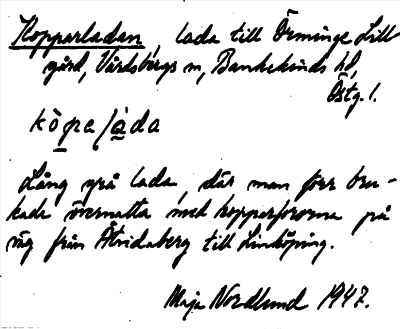 Kopparladan, lada till Örminge Lill
gård, Vårdsbergs sn, Bankekinds hd,
Östg. l.
kòpa/làda
Lång grå lada, där man förr bru-
kade övernatta med kopparforerna på
väg från Åtvidaberg till Linköping.
Maja Nordlund 1947.